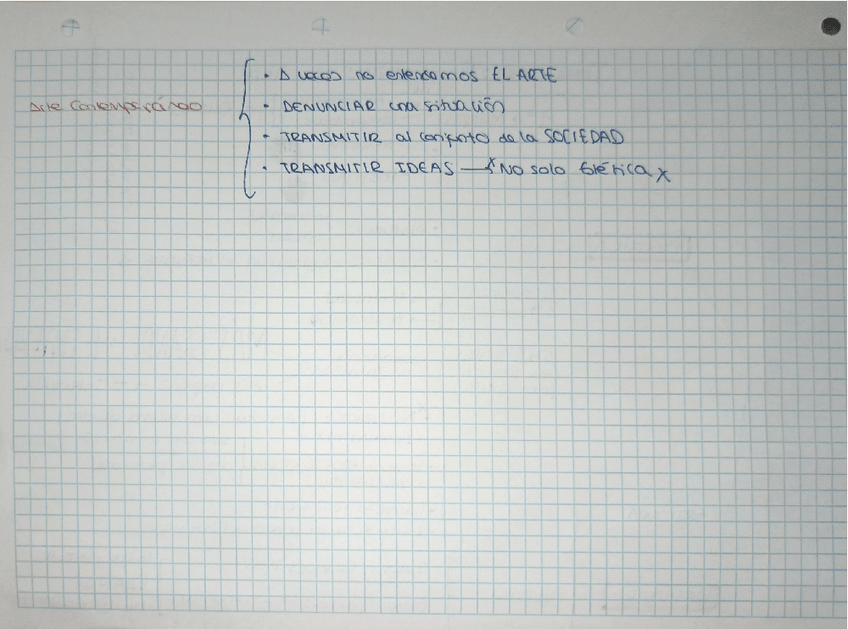 Arte Contemporáneo
· A veces no entendemos EL ARTE
· DENUNCIAR una situación
· TRANSMITIR al conjunto de la SOCIEDAD
· TRANSMITIR IDEAS → NO solo Estética x